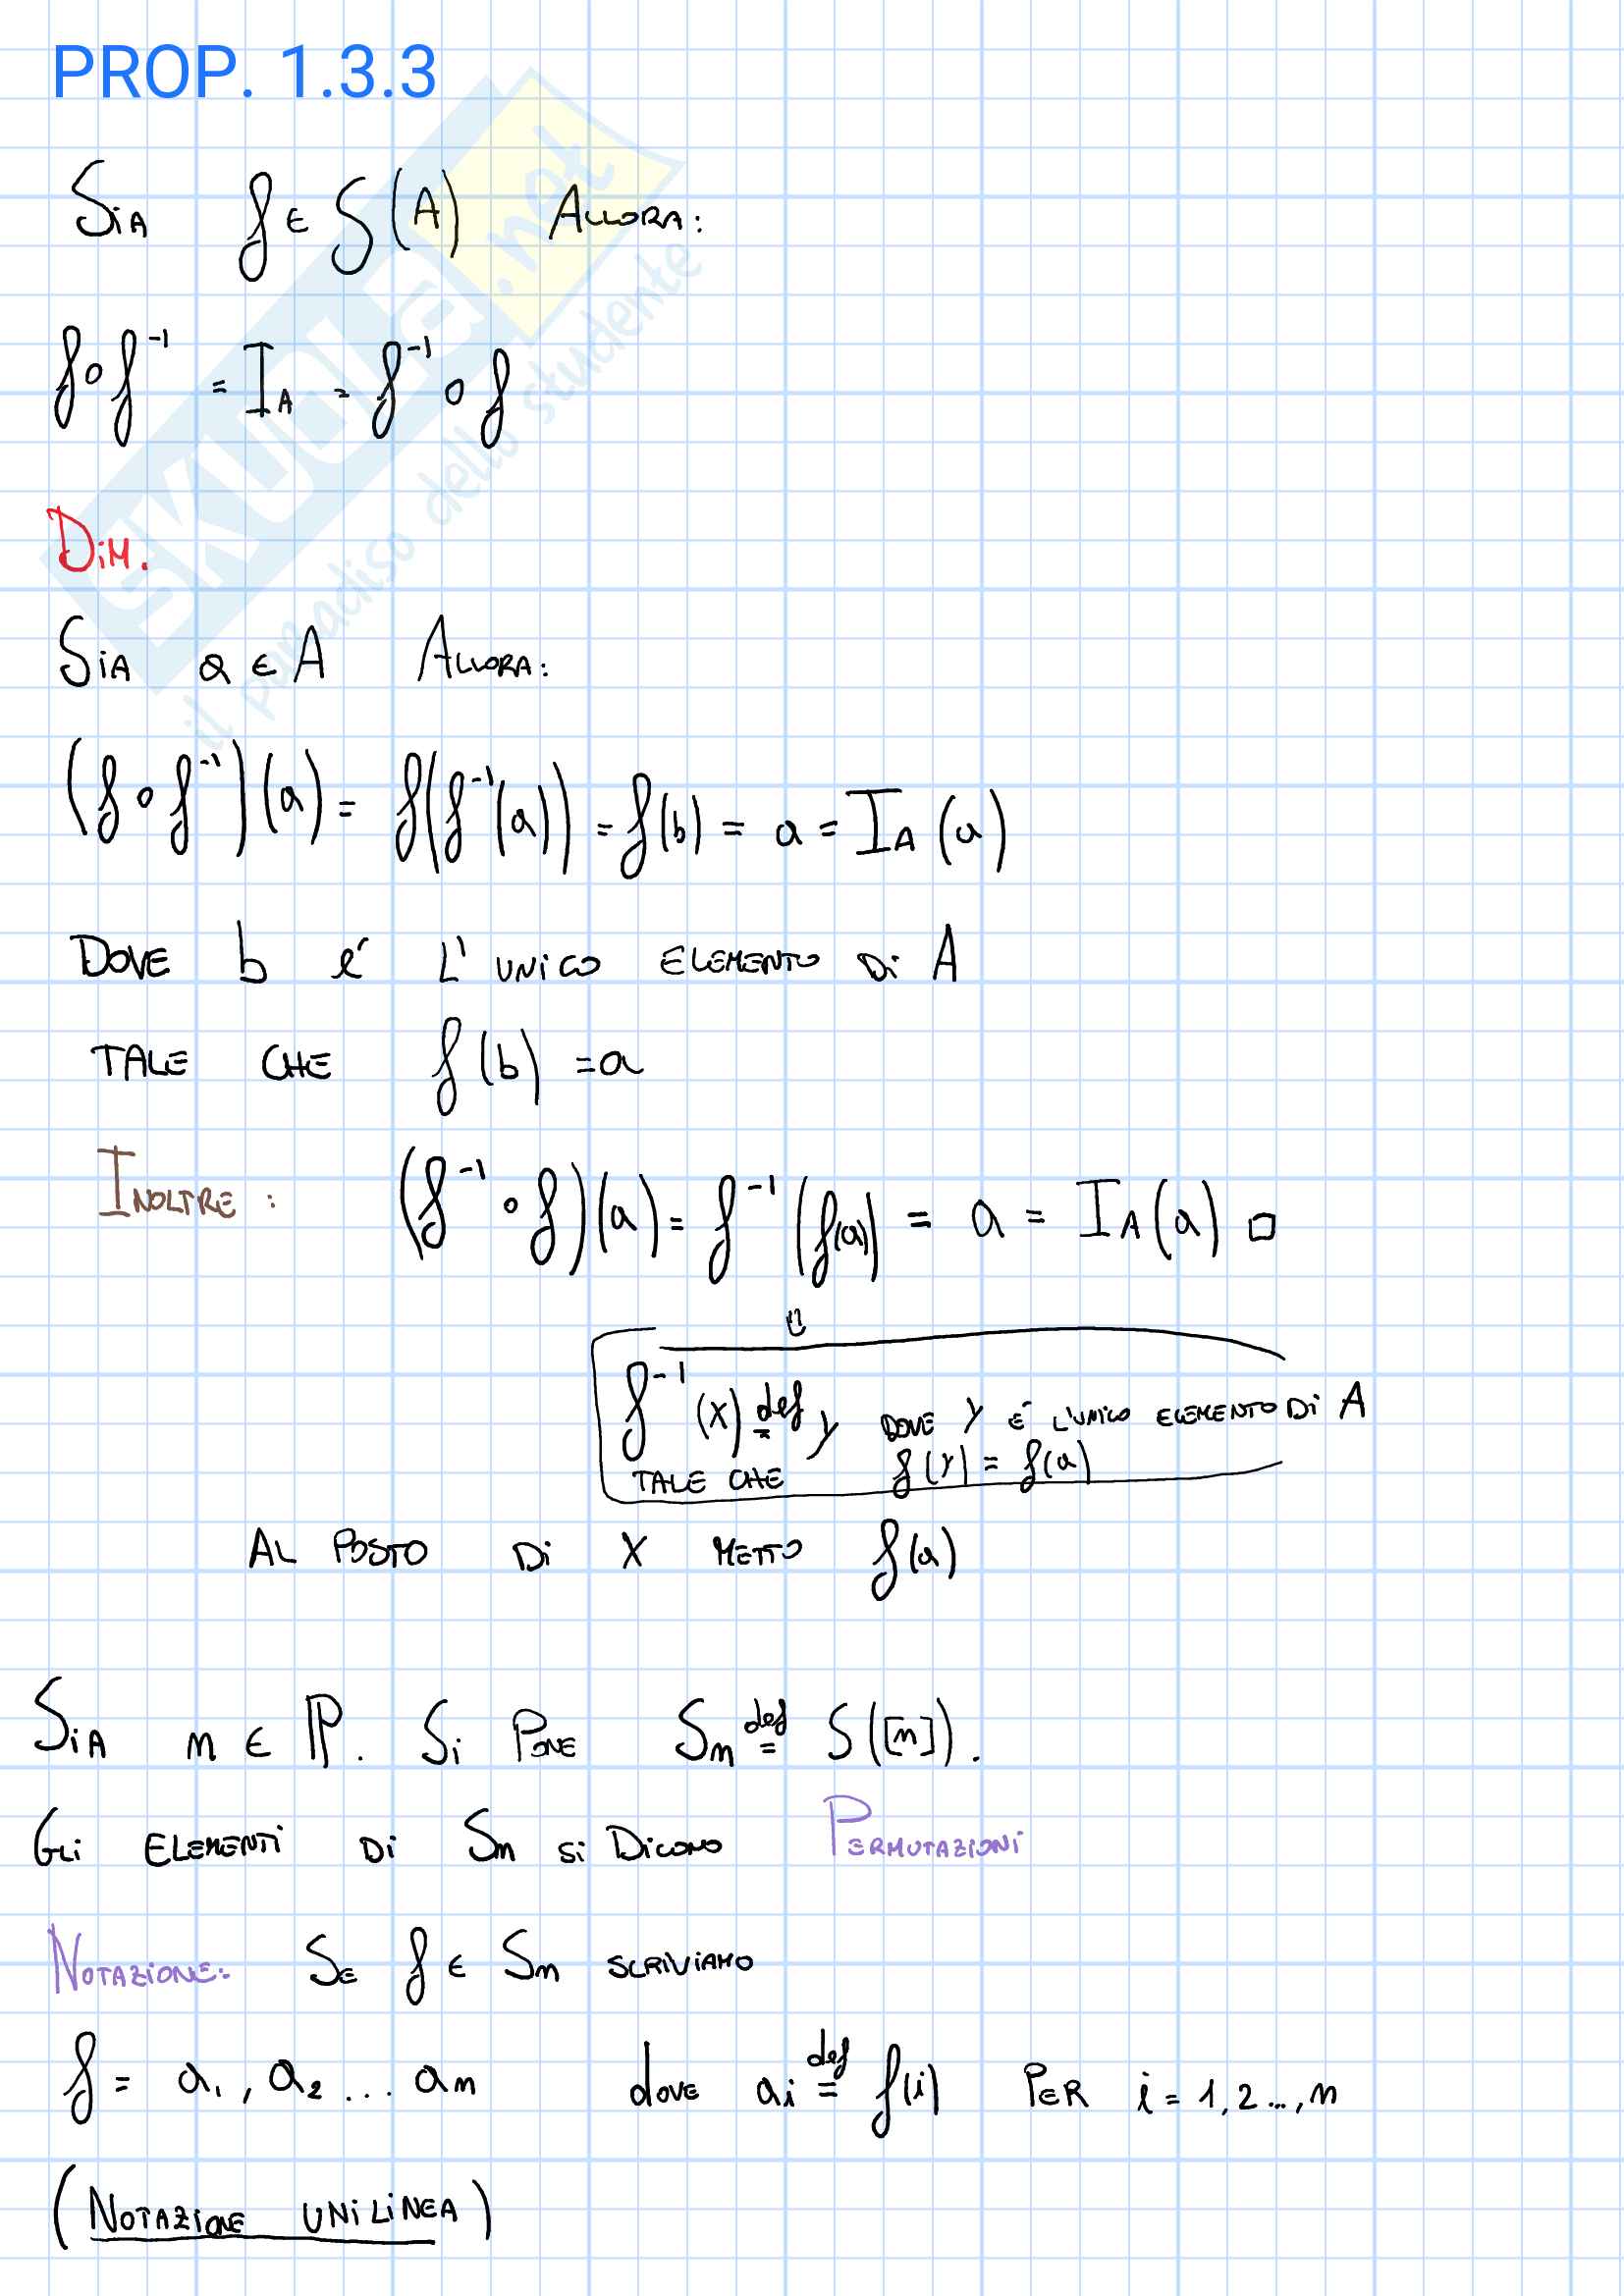 PROP. 1.3.3
SiA f ∈ S(A) ALLORA:
f∘f⁻¹ = I_A = f⁻¹∘f
DiM.
SiA a ∈ A ALLORA:
(f∘f⁻¹)(a) = f(f⁻¹(a)) = f(b) = a = I_A(a)
DOVE b é L'UNiCO ELEMENTO Di A
TALE CHE f(b) = a
INOLTRE: (f⁻¹∘f)(a) = f⁻¹(f(a)) = a = I_A(a) □
f⁻¹(x) def= y DOVE y É L'UNiCO ELEMENTO Di A
TALE CHE f(y) = f(a)
AL POSTO Di X METTO f(a)
SiA n ∈ ℙ. Si PONE Sn def= S([n]).
GLi ELEMENTi Di Sn Si DiCONO PERMUTAZIONi
NOTAZiONE: SE f ∈ Sn SCRiViAMO
f = a₁, a₂ ... an dOVE ai def= f(i) PER i = 1, 2 ..., n
(NOTAZiONE UNiLiNEA)
SKUOLA.net
il paradiso dello studente